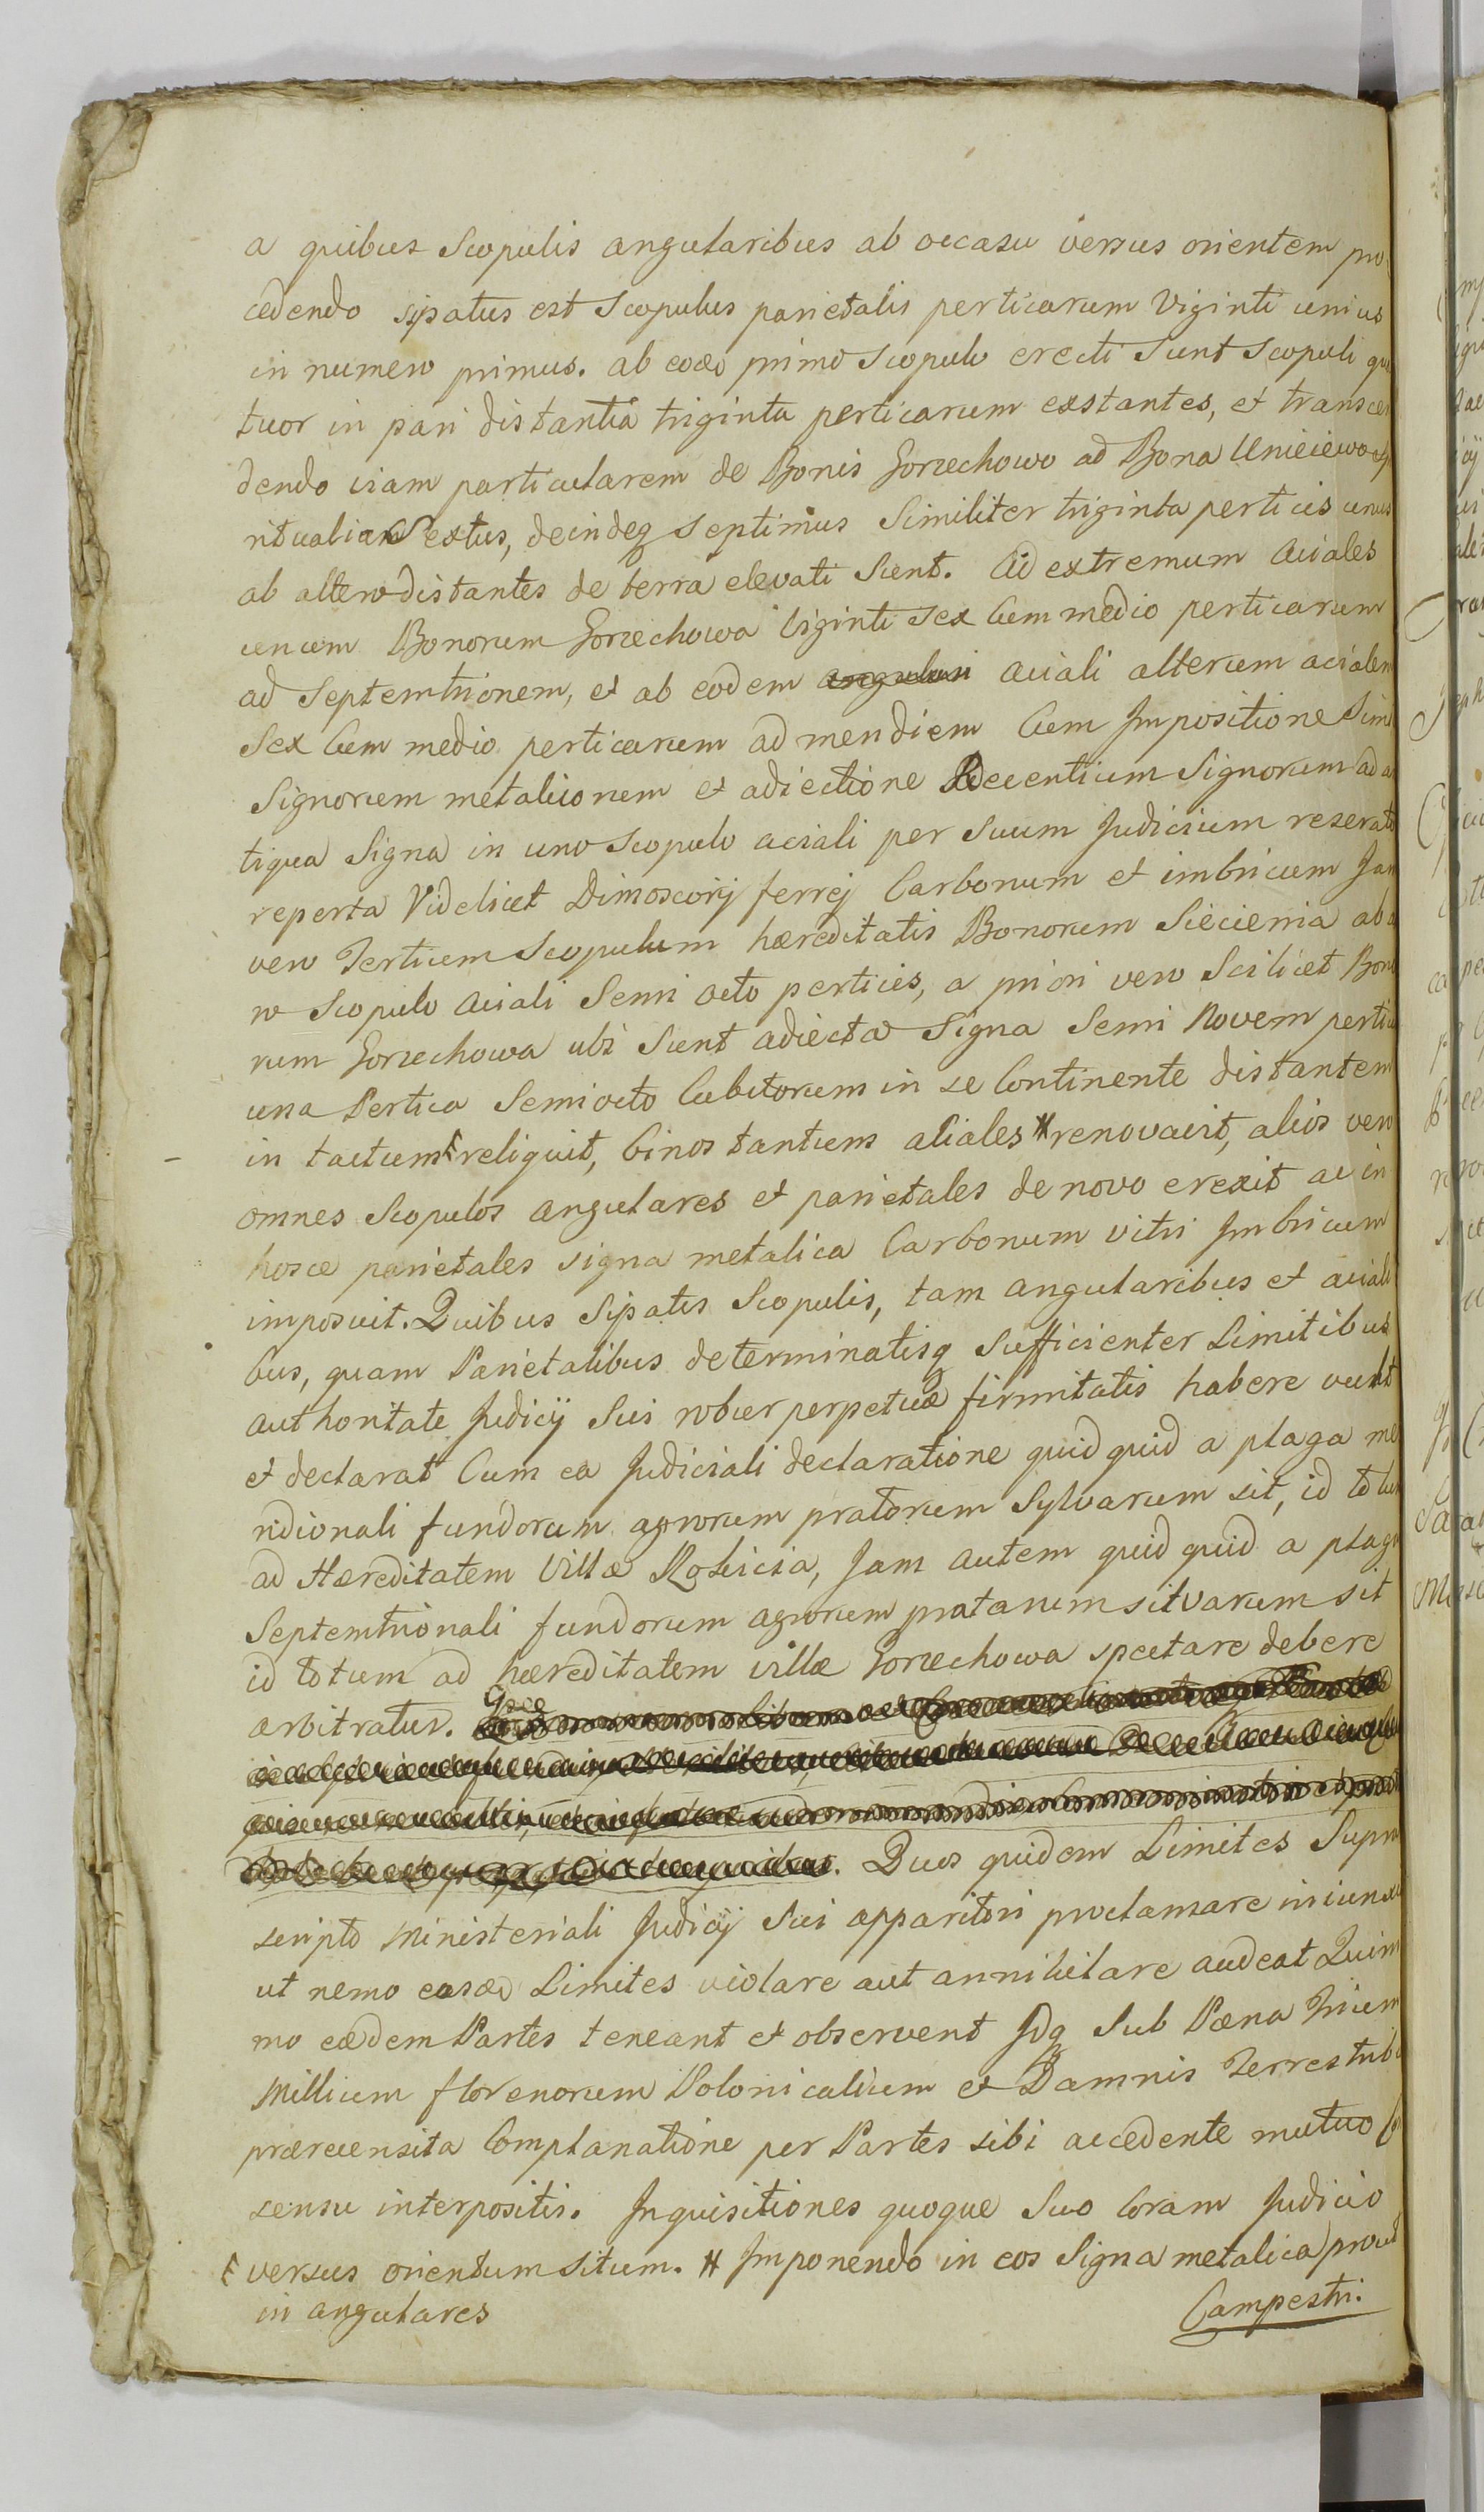 a quibus Scopulis angularibus ab occasu versus orientem pro
cedendo sipatus est Scopulus parietalis perticarum Viginti unius
in numero primus. ab eoqo primo Scopulo erecti Sunt Scopuli qua
tuor in pari distantia triginta perticarum exstantes, et transcen
dendo viam particularem de Bonis Gorzechowo ad Bona Unieiewo
ritualia Sextus, deindeq Septimus Similiter triginta perticis unus
ab altero distantes de terra elevati Sunt. Ad extremum Aciales
unum Bonorum Gorzechowa Viginti Sex Cum medio perticarum
ad Septemtrionem, et ab eodem angulari aciali alterum acialem
Sex Cum medio perticarum ad meridiem Cum Impositione Sim
Signorum metalicorum et adiectione Recentium Signorum ad an
tiqua Signa in uno Scopulo aciali per Suum Judicium reserato
reperta Videlicet Dimoscorij ferrej Carbonum et imbricum Jam
vero Tertium Scopulum hæreditatis Bonorum Siecienia ab a
ro Scopulo Aciali Semi octo perticis, a priori vero Scilicet Bono
rum Gorzechowa ubi Sunt adiecta Signa Semi Novem pertic
una Pertica Semiocto Cubitorum in se Continente distantem
in tactum reliquit, binos tantum aciales # renovavit, alios vero
omnes Scopulos angulares et parietales de novo erexit ac in
hosce parietales signa metalica Carbonum vitri Imbricum
imposuit. Quibus Sipatis Scopulis, tam angularibus et aciali
bus, quam Parietalibus determinatisq Sufficienter Limitibus
authoritate Judicij Sui robur perpetuæ firmitatis habere vult
et declarat Cum ea Judiciali declaratione quid quid a plaga me
ridionali fundorum agrorum pratorum Sylvarum sit, id totum
ad Hæreditatem Villæ Rosicia, Jam autem quid quid a plaga
Septemtrionali fundorum agrorum pratarum silvarum sit
id totum ad hæreditatem villæ Gorzechowa spectare debere
arbitratur.
Quos quidem Limites Supra
scripto Ministeriali Judicij Sui apparitori proclamare iniunxit
ut nemo eosdem Limites violare aut annihilare audeat Quim
mo eædem Partes teneant et observent Idq Sub Pæna Trium
Millium florenorum Polonicalium et Damnis Terrestribus
præcensita Complanatione per Partes sibi accedente mutuo Co
sensu interpositis. Inquisitiones quoque Suo Coram Judicio
versus orientum situm. # Imponendo in eos Signa metalica prout
in angulares
Campestri.